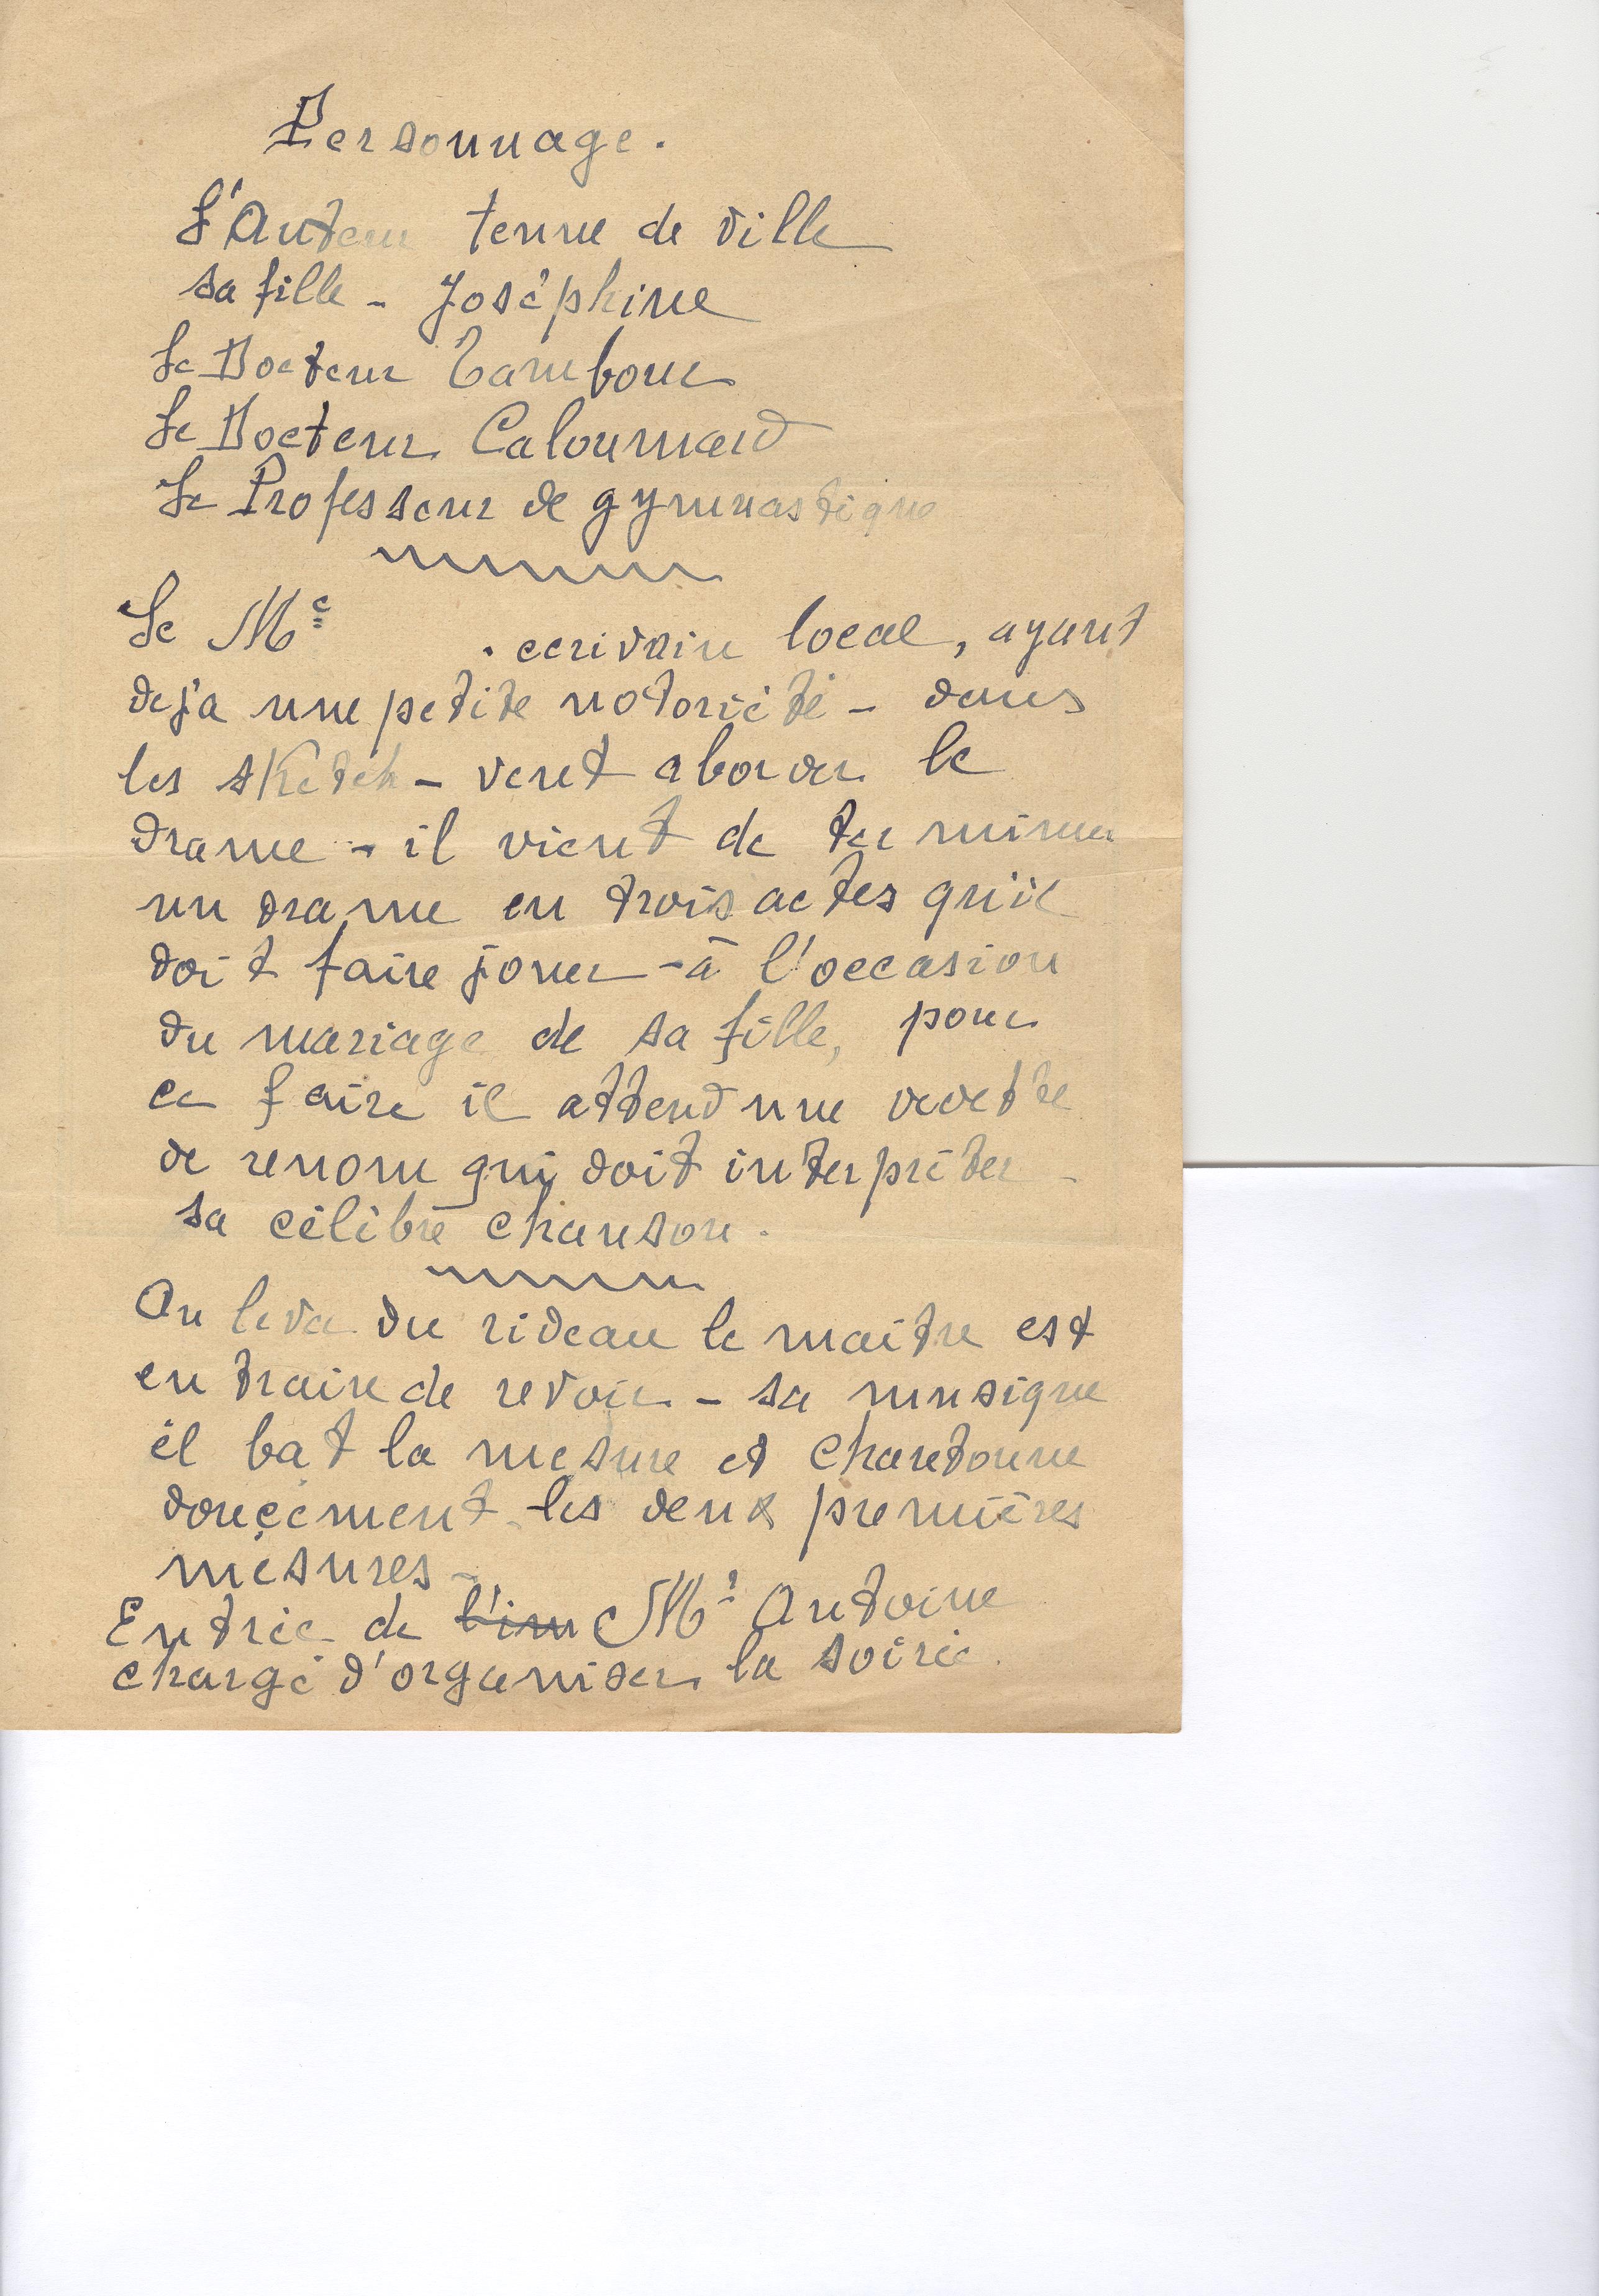 Personnage.
L'Auteur tenue de ville
sa fille - Joséphine
Le Docteur Tambour
Le Docteur Caloumard
Le Professeur de gymnastique
Le Me . ecrivain local, ayant
deja une petite notoriété - dans
les sketch - veut aborder le
drame - il vient de terminer
un drame en trois actes qu'il
doit faire jouer - à l'occasion
du mariage de sa fille, pour
ce faire il attend une vedette
de renom qui doit interpréter -
sa célèbre chanson.
Au lever du rideau le maitre est
en train de revoir - sa musique
il bat la mesure et chantonne
doucement - les deux premières
mesures -
Entrée de l'im Mr Antoine
chargé d'organiser la soirée.